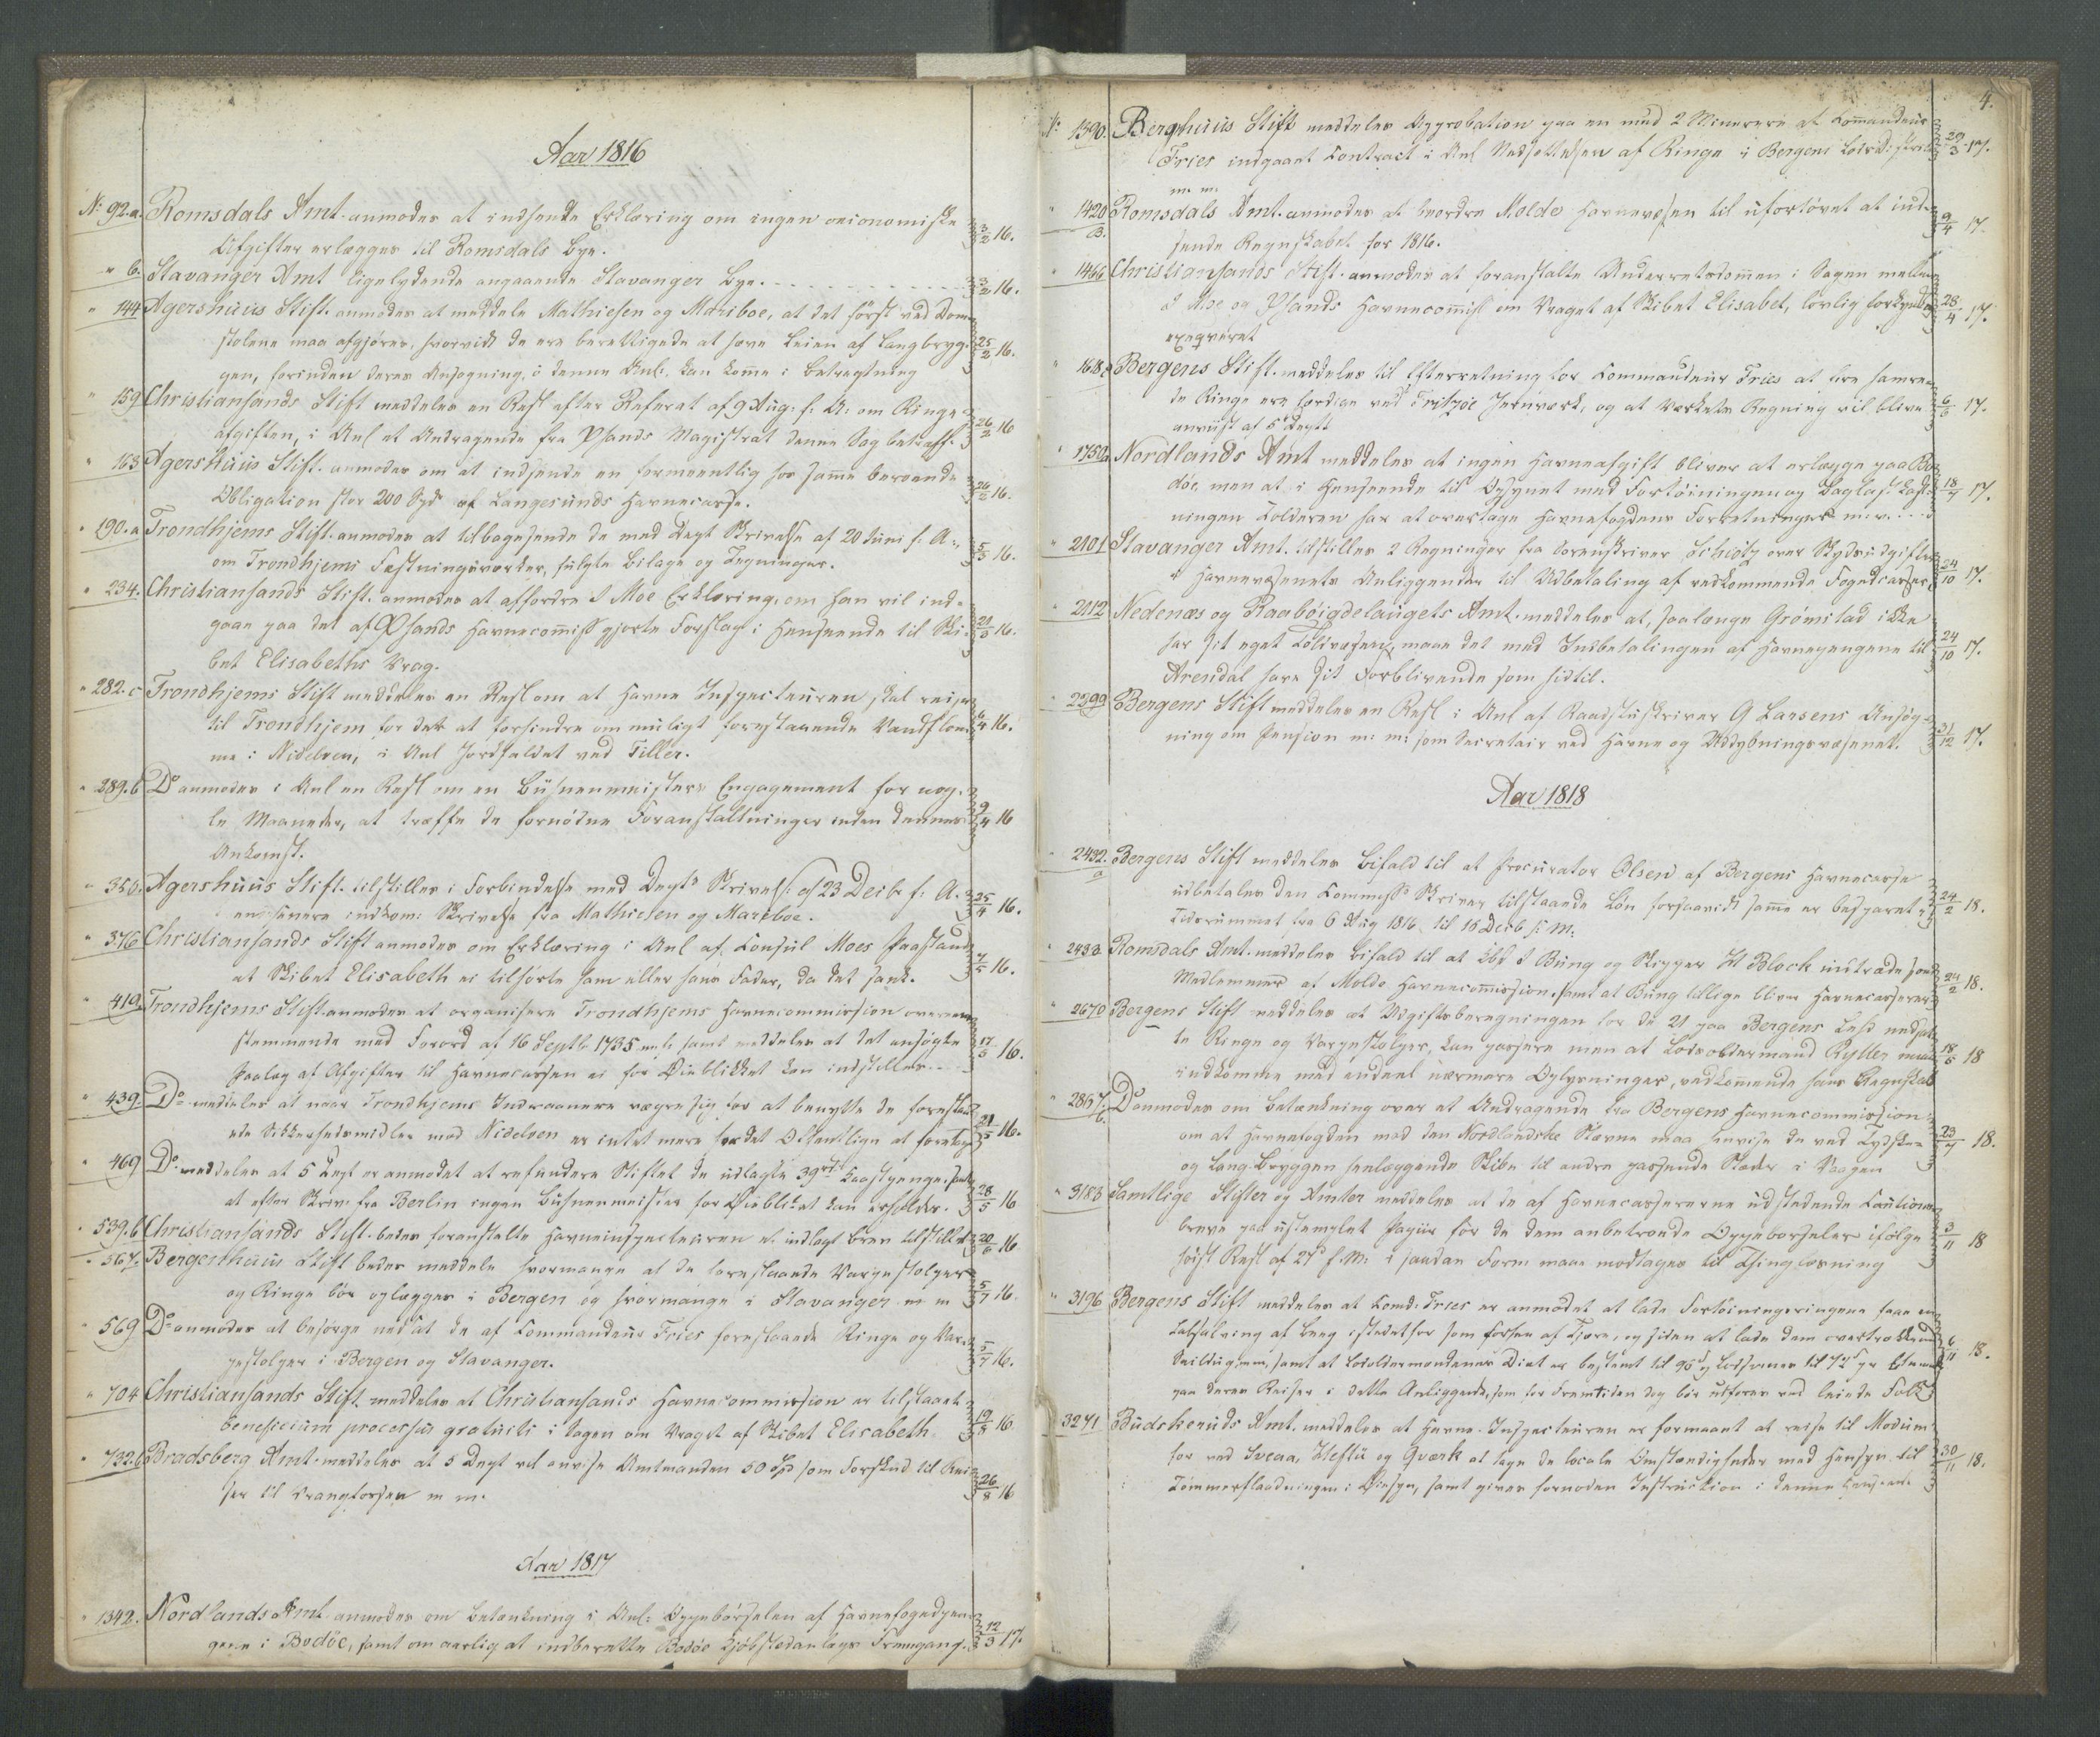 Aar 1816
No 92.a. Romsdals Amt. anmodes at indsende Erklæring om ingen oeconomiske 3/2 16.
Afgifter erlægges til Romsdals Bye.
" b. Stavanger Amt ligelydende angaaende Stavanger Bye. 3/2 16.
" 144 Agershuus Stift. anmodes at meddele Mathiesen og Mariboe, at det først ved Dom-
stolene maa afgjøres, hvorvidt de ere berettigede at hæve Leien af Langbryg- 25/2 16.
gen, forinden deres Ansøgning i denne Anl. kan komme i Betragtning
" 159 Christiansands Stift meddeles en Resl efter Referat af 9 Aug: f: A: om Ringe-
afgiften, i Anl et Andragende fra Xsands Magistrat denne Sag betræff. 26/2 16
" 163 Agershuus Stift. anmodes om at indsende en formeentlig hos samme beroende
Obligation stor 200 Spd af Langesunds Havnecasse. 26/2 16.
" 190.a Trondhjems Stift. anmodes at tilbagesende de med Degt Skrivelse af 20 Juni f. A.,
om Trondhjems Fæstningsværker, fulgte Bilage og Tegninger. 5/3 16.
" 234. Christiansands Stift. anmodes at affordre J Moe Erklæring, om han vil ind-
gaae paa det af Xsands Havnecommiss gjorte Forslag i Henseende til Ski- 21/3 16.
bet Elisabeths Vrag.
" 282.c Trondhjems Stift meddeles en Resl om at Havne Inspecteuren skal reise
til Trondhjem for der at forhindre om muligt forestaaende Vandflom- 6/4 16.
me i Nidelven, i Anl Jordfaldet ved Tiller.
" 289.b Do anmodes i Anl en Resl om en Buhnenmeisters Engagement for nog-
le Maaneder, at træffe de fornødne Foranstaltninger inden dennes 9/4 16
Ankomst.
" 350. Agershuus Stift. tilstilles i Forbindelse med Degts Skrivels: af 23 Decbr f. A.
en senere indkom: Skrivelse fra Mathiesen og Mariboe. 25/4 16.
" 376 Christiansands Stift anmodes om Erklæring i Anl af Consul Moes Paastand
at Skibet Elisabeth ei tilhørte ham eller hans Fader, da det sank. 7/5 16.
" 419. Trondhjems Stift. anmodes at organisere Trondhjems Havnecommission overeens-
stemmende med Forord af 16 Septbr 1735 samt meddeles at det ansøgte 17/5 16.
Paalæg af Afgifter til Havnecassen ei for Øieblikket kan indstilles
" 439. Do meddeles at naar Trondhjems Indvaanere vægre sig for at benytte de foreslaa-
ede Sikkerhedsmidler mod Nidelven er intet mere for det Offentlige at foretage 21/5 16.
" 469 Do meddeles at 5 Degt er anmodet at refundere Stiftet de udlagte 39 rd Baastpenge, samt
at efter Skriv: fra Berlin ingen Buhnenmeister for Øieblikket kan erholdes. 28/5 16
" 539.b Christiansands Stift. bedes foranstalte Havneinspecteuren et indlagt Brev tilstillet 20/6 16
" 567. Bergenhuus Stift bedes meddele hvormange af de foreslaaede Varpestolper
og Ringe bør oplægges i Bergen og hvormange i Stavanger m m 5/7 16.
" 569 Do anmodes at besørge nedsat de af Commandeur Fries foreslaaede Ringe og Var-
pestolper i Bergen og Stavanger. 5/7 16.
" 704 Christiansands Stift. meddeles at Christiansands Havnecommission er tilstaaet
beneficium processus gratuiti i Sagen om Vraget af Skibet Elisabeth 19/8 16
" 732.b Bradsberg Amt. meddeles at 5 Degt vil anvise Amtmanden 50 Spd som Forskud til Rei-
ser til Vrangfossen m m. 26/8 16
Aar 1817
" 1342. Nordlands Amt. anmodes om Betænkning i Anl: Oppebørselen af Havnefogedpen-
gene i Bodöe, samt om aarlig at indberette Bodöe Kjøbstedanlægs Fremgang. 12/3 17.
4.
No 1390. Berghuus Stift meddeles Approbation paa en med 2 Minerere af Commandeur
Fries indgaaet Contract i Anl Nedsættelsen af Ringe i Bergens Lodsdistrict 29/3 17.
m. m.
" 1420 B. Romsdals Amt. anmodes at beordre Molde Havnevæsen til ufortøvet at ind-
sende Regnskabet for 1816. 9/4 17.
" 1466 Christiansands Stift. anmodes at foranstalte Underretsdommen i Sagen mellem
J Moe og Xsands Havnecommiss om Vraget af Skibet Elisabet, lovlig forkyndt 28/4 17.
exeqveret
" 1618. Bergens Stift. meddeles til Efterretning for Commandeur Fries at
de Ringe ere færdige ved Fritzöe Jernværk, og at Værkets Regning vil blive 6/6 17.
anviist af 5 Degt
" 1750. Nordlands Amt meddeles at ingen Havneafgift bliver at erlægge paa Bo-
döe, men at i Henseende til Opsynet med Fortøiningen og Baglast-Kast- 18/7 17.
ningen Tolderen har at overtage Havnefogdens Forretninger m. v.
" 2101 Stavanger Amt. tilstilles 2 Regninger fra Sorenskriver Schiøtz over Skydsudgifter
i Havnevæsenets Anliggender til Udbetaling af vedkommende Fogedcasse 24/10 17.
" 2012 Nedenæs og Raabøigdelaugets Amt. meddeles at, saalænge Grømstad ikke
har sit eget Toldvæsen, maae det med Indbetalingen af Havnepengene til 24/10 17.
Arendal have sit Forblivende som hidtil.
" 2299 Bergens Stift meddeles en Resl i Anl af Raadstuskriver G Larsens Ansøg-
ning om Pension m: m: som Secretair ved Havne og Uddybningsvæsenet. 31/12 17.
Aar 1818
" 2432. a Bergens Stift meddeles Bifald til at Procurator Olsen af Bergens Havnecasse
udbetales den Commiss Skriver tilstaaede Løn forsaavidt samme er besparet i 24/2 18.
Tidsrummet fra 6 Aug 1816 til 18 Decb
" 2433 Romsdals Amt. meddeles Bifald til at J Bung og Skipper H Block indtræde som
Medlemmer af Molde Havnecommission, samt at Bung tillige bliver Havnecasserer 24/2 18.
" 2670 Bergens Stift meddeles at Udgiftsberegningen for de 21 paa Bergens Leed nedsat-
te Ringe og Varpestolper, kan passere men at Lodsoldermand Rytter maa 18/5 18
indkomme med endeel nærmere Oplysninger, vedkommende hans Regnskab
" 2857. b. Do anmodes om Betænkning over et Andragende fra Bergens Havnecommission
om at Havnefogden mod den Nordlandske Stævne maa anvise de ved Tydske- 23/7 18.
og Lang-Bryggen henlæggende Skibe til andre passende Steder i Vaagen
" 3183 Samtlige Stifter og Amter meddeles at de af Havnecassererne udstedende Cautions-
breve paa ustemplet Papiir for de dem anbetroede Oppebørseler ifølge 3/11 18
høist Resl af 27 f. M: i saadan Form maae modtages til Thinglæsning
" 3196 Bergens Stift meddeles at Comd: Fries er anmodet at lade Fortøiningsringene faae en
Saltsalving af Beeg istedetfor som forhen af Tjære, og siden at lade dem overtrække med
Seildugsom, samt at Lodsoldermandens Diæt er bestemt til 96 s og Lodsernes til 72 s pr 6/11 18.
paa deres Reiser i dette Anliggende, som for Fremtiden dog bør udføres ved leiede Folk
" 3271 Budskeruds Amt. meddeles at Havne-Inspecteuren er formaaet at reise til Modum
for ved Sveaa, Hefti og Qværk at tage de locale Omstændigheder med Hensyn til 30/11 18.
Tømmerflaadningen i Øiesyn, samt gives fornøden Instruction i denne Henseende